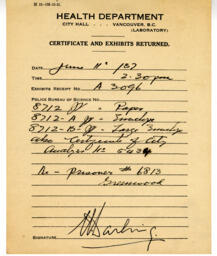 HEALTH DEPARTMENT
CITY HALL . . . VANCOUVER, B.C.
(LABORATORY)
CERTIFICATE AND EXHIBITS RETURNED.
DATE June 11 1937
TIME 2.30 pm
EXHIBITS RECEIPT NO. A 3096
POLICE BUREAU OF SCIENCE NO.
8712 - Paper
8712-A - Envelope
8712-B - Large Envelope
also Certificate of City
Analyst No 5434
Re - Prisoner # 6813
Greenwood
SIGNATURE